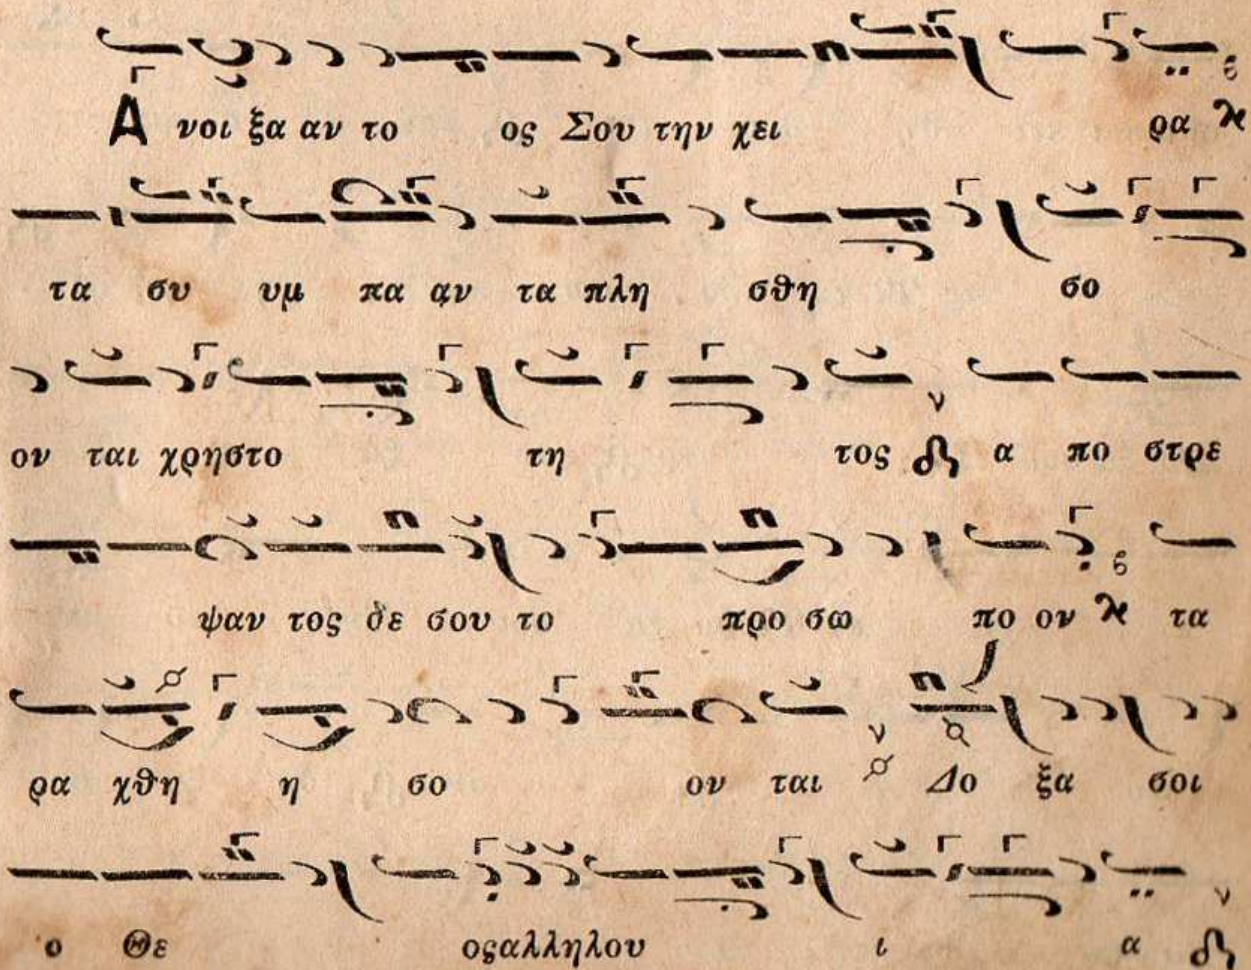 Ἀ νοι ξα αν το ος Σου την χει ρα
τα συ υμ πα αν τα πλη σθη σο
ον ται χρηστο τη τος α πο στρε
ψαν τος δε σου το προ σω πο ον τα
ρα χθη η σο ον ται Δο ξα σοι
ο Θε οςαλληλου ι α